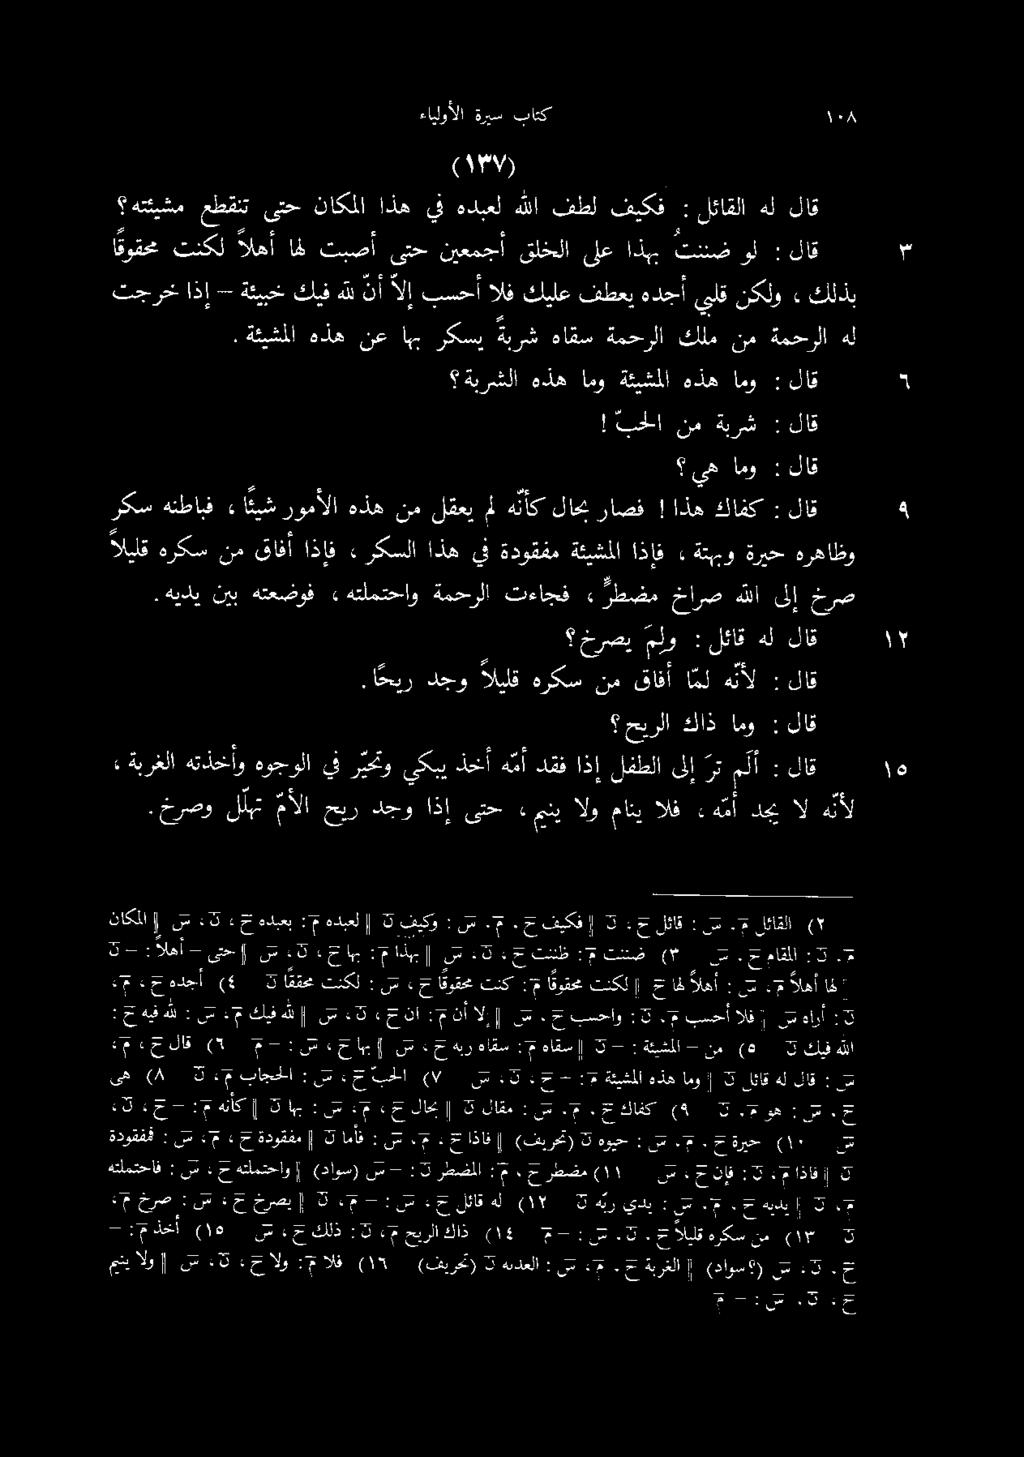 ١٠٨ كتاب سيرة الأولياء
(١٣٧)
قال له القائل : فكيف لطف الله لعبده في هذا المكان حتى تنقطع مشيئته؟
٣ قال : لو ضننتُ بهذا على الخلق أجمعين حتى أصبت لها أهلاً لكنت محقوقًا
بذلك ، ولكن قلبي أجده يعطف عليك فلا أحسب إلاّ أنّ لله فيك خبيئة – إذا خرجت
له الرحمة من ملك الرحمة سقاه شربةً يسكر بها عن هذه المشيئة .
٦ قال : وما هذه المشيئة وما هذه الشربة؟
قال : شربة من الحبّ !
قال : وما هي؟
٩ قال : كفاك هذا ! فصار بحال كأنّه لم يعقل من هذه الأمور شيئًا ، فباطنه سكر
وظاهره حيرة وبهتة ، فإذا المشيئة مفقودة في هذا السكر ، فإذا أفاق من سكره قليلاً
صرخ إلى الله صراخ مضطرٍّ ، فجاءت الرحمة واحتملته ، فوضعته بين يديه .
١٢ قال له قائل : ولِمَ يصرخ؟
قال : لأنّه لمّا أفاق من سكره قليلاً وجد ريحًا .
قال : وما ذاك الريح؟
١٥ قال : ألَم ترَ إلى الطفل إذا فقد أمّه أخذ يبكي وتحيّر في الوجوه وأخذته الغربة ،
لأنّه لا يجد أمّه ، فلا ينام ولا ينيم ، حتى إذا وجد ريح الأمّ تهلّل وصرخ .
٢) القائل م . س : قائل ح ، ن ‖ فكيف ح . م . س : وكيف ن ‖ لعبده م : بعبده ح ، ن ، س ‖ المكان
م . ن : المقام ح . س ٣) ضننت م : ظننت ح ، ن ، س ‖ بهذا م : بها ح ، ن ، س ‖ حتى – أهلاً : – ن
‖ لها أهلاً م ، س : أهلاً لها ح ‖ لكنت محقوقًا م : كنت محقوقًا ح ، س : لكنت محققًا ن ٤) أجده ح ، م ،
ن : أراه س ‖ فلا أحسب م . ن : واحسب ح . س ‖ إلا أن م : ان ح ، ن ، س ‖ لله فيك م ، س : لله فيه ح :
الله فيك ن ٥) من – المشيئة : – ن ‖ سقاه م : سقاه ربه ح ، س ‖ بها ح ، س : – م ٦) قال ح ، م ،
س : قال له قائل ن ‖ وما هذه المشيئة م : – ح ، ن ، س ٧) الحبّ ح ، س : الحجاب م ، ن ٨) هى
ح . س : هو م . ن ٩) كفاك ح . م . س : مقال ن ‖ بحال ح ، م ، س : بها ن ‖ كأنه م : – ح ، ن ،
س ١٠) حيرة ح . م . س : حيوه ن (تحريف) ‖ فاذا ح . م . س : فأما ن ‖ مفقودة ح ، م ، س : فمفقودة
ن ‖ فاذا م ، ن : فإن ح ، س ١١) مضطر ح . م : المضطر ن : – س (سواد) ‖ واحتملته ح ، س : فاحتملته
م . ن ‖ يديه ح . م . س : يدي ربّه ن ١٢) له قائل ح ، س : – م ، ن ‖ يصرخ ح ، س : صرخ م ،
ن ١٣) من سكره قليلاً ح . ن . س : – م ١٤) ذاك الريح م ، ن : ذلك ح ، س ١٥) أخذ م : –
ح . ن . س (؟ سواد) ‖ الغربة ح . م ، س : ن (تحريف) ١٦) فلا م : ولا ح ، ن ، س ‖ ولا ينيم
ح ، ن . س : – م